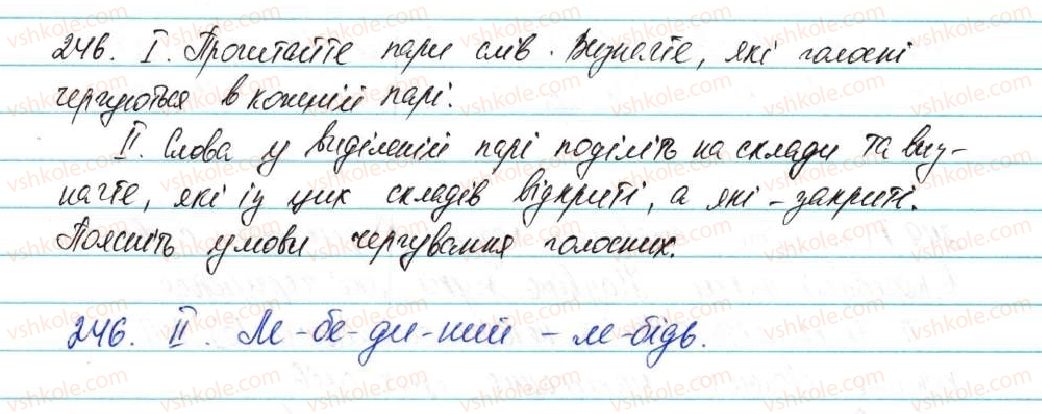 246. I. Прочитайте пари слів. Визначте, які голосні
чергуються в кожній парі.
II. Слова у виділеній парі поділіть на склади та виз-
начте, які із цих складів відкриті, а які - закриті.
Поясніть умови чергування голосних.
246. II. Ле-бе-ди-ний - ле-бідь.